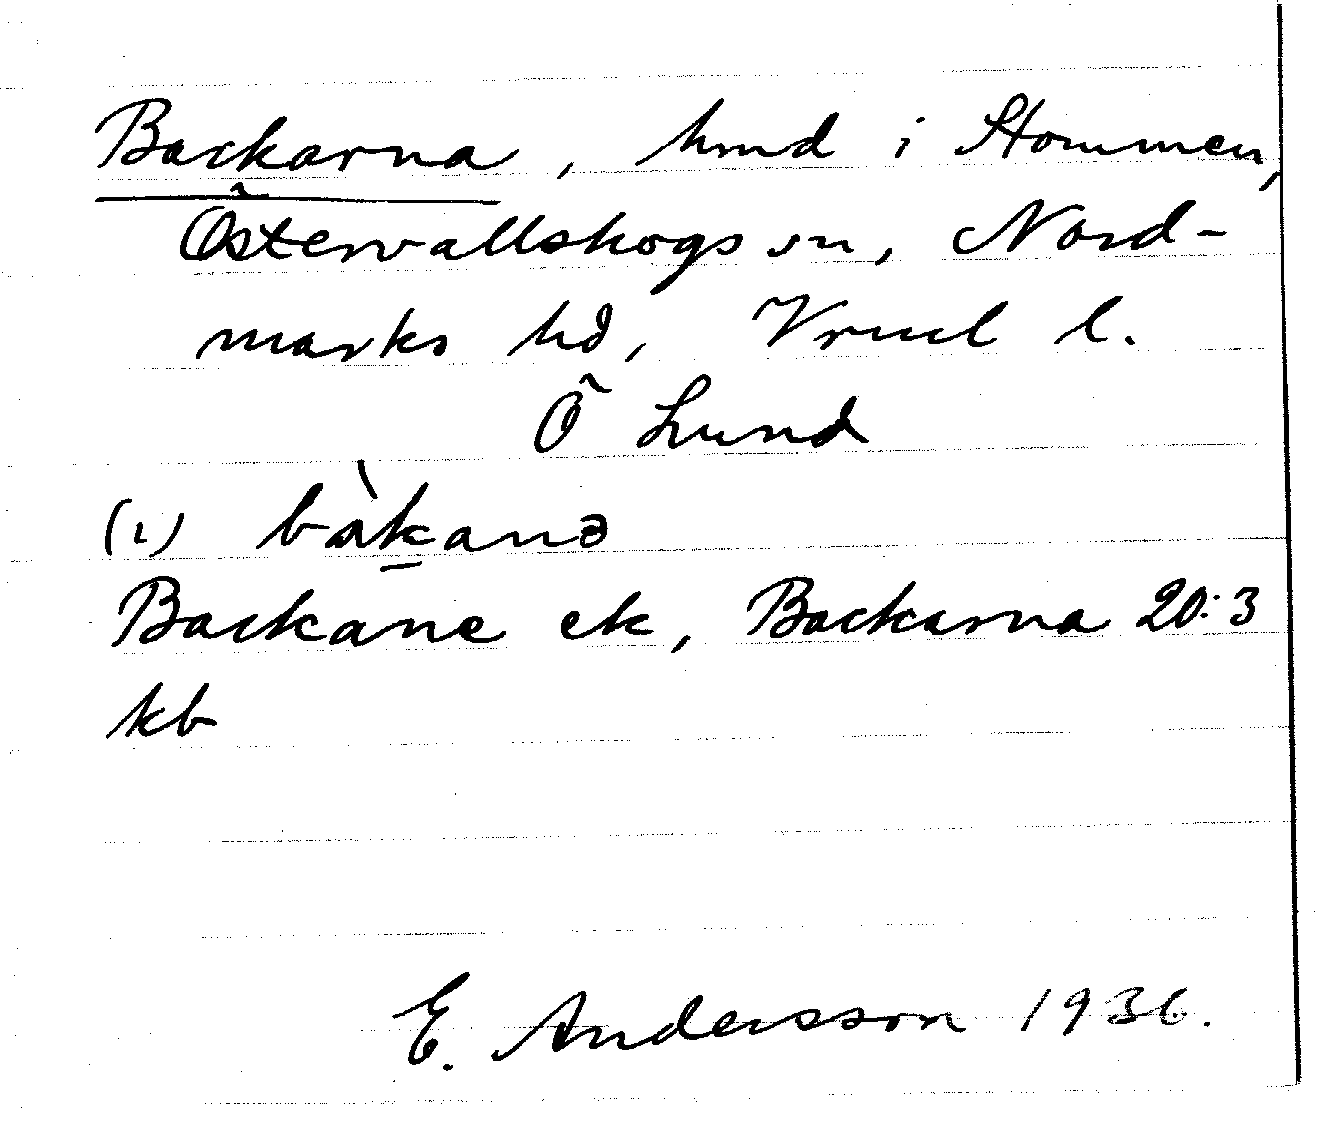 Backarna, hmd i Stommen,
Östervallskogs sn, Nord-
marks hd, Vrml l.
Ö Lund
(1) bàk̠anə
Backane ek, Backarna 20:3
kb
E. Andersson 1936.